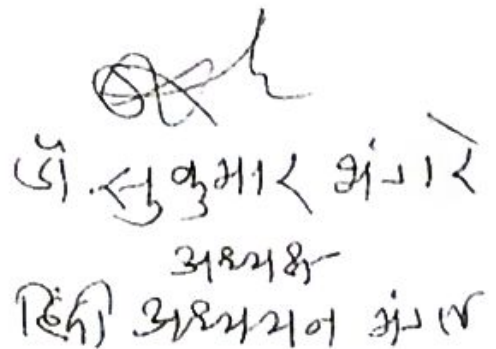 डॉ. सुकुमार भंडारे
अध्यक्ष
हिंदी अध्ययन मंडल